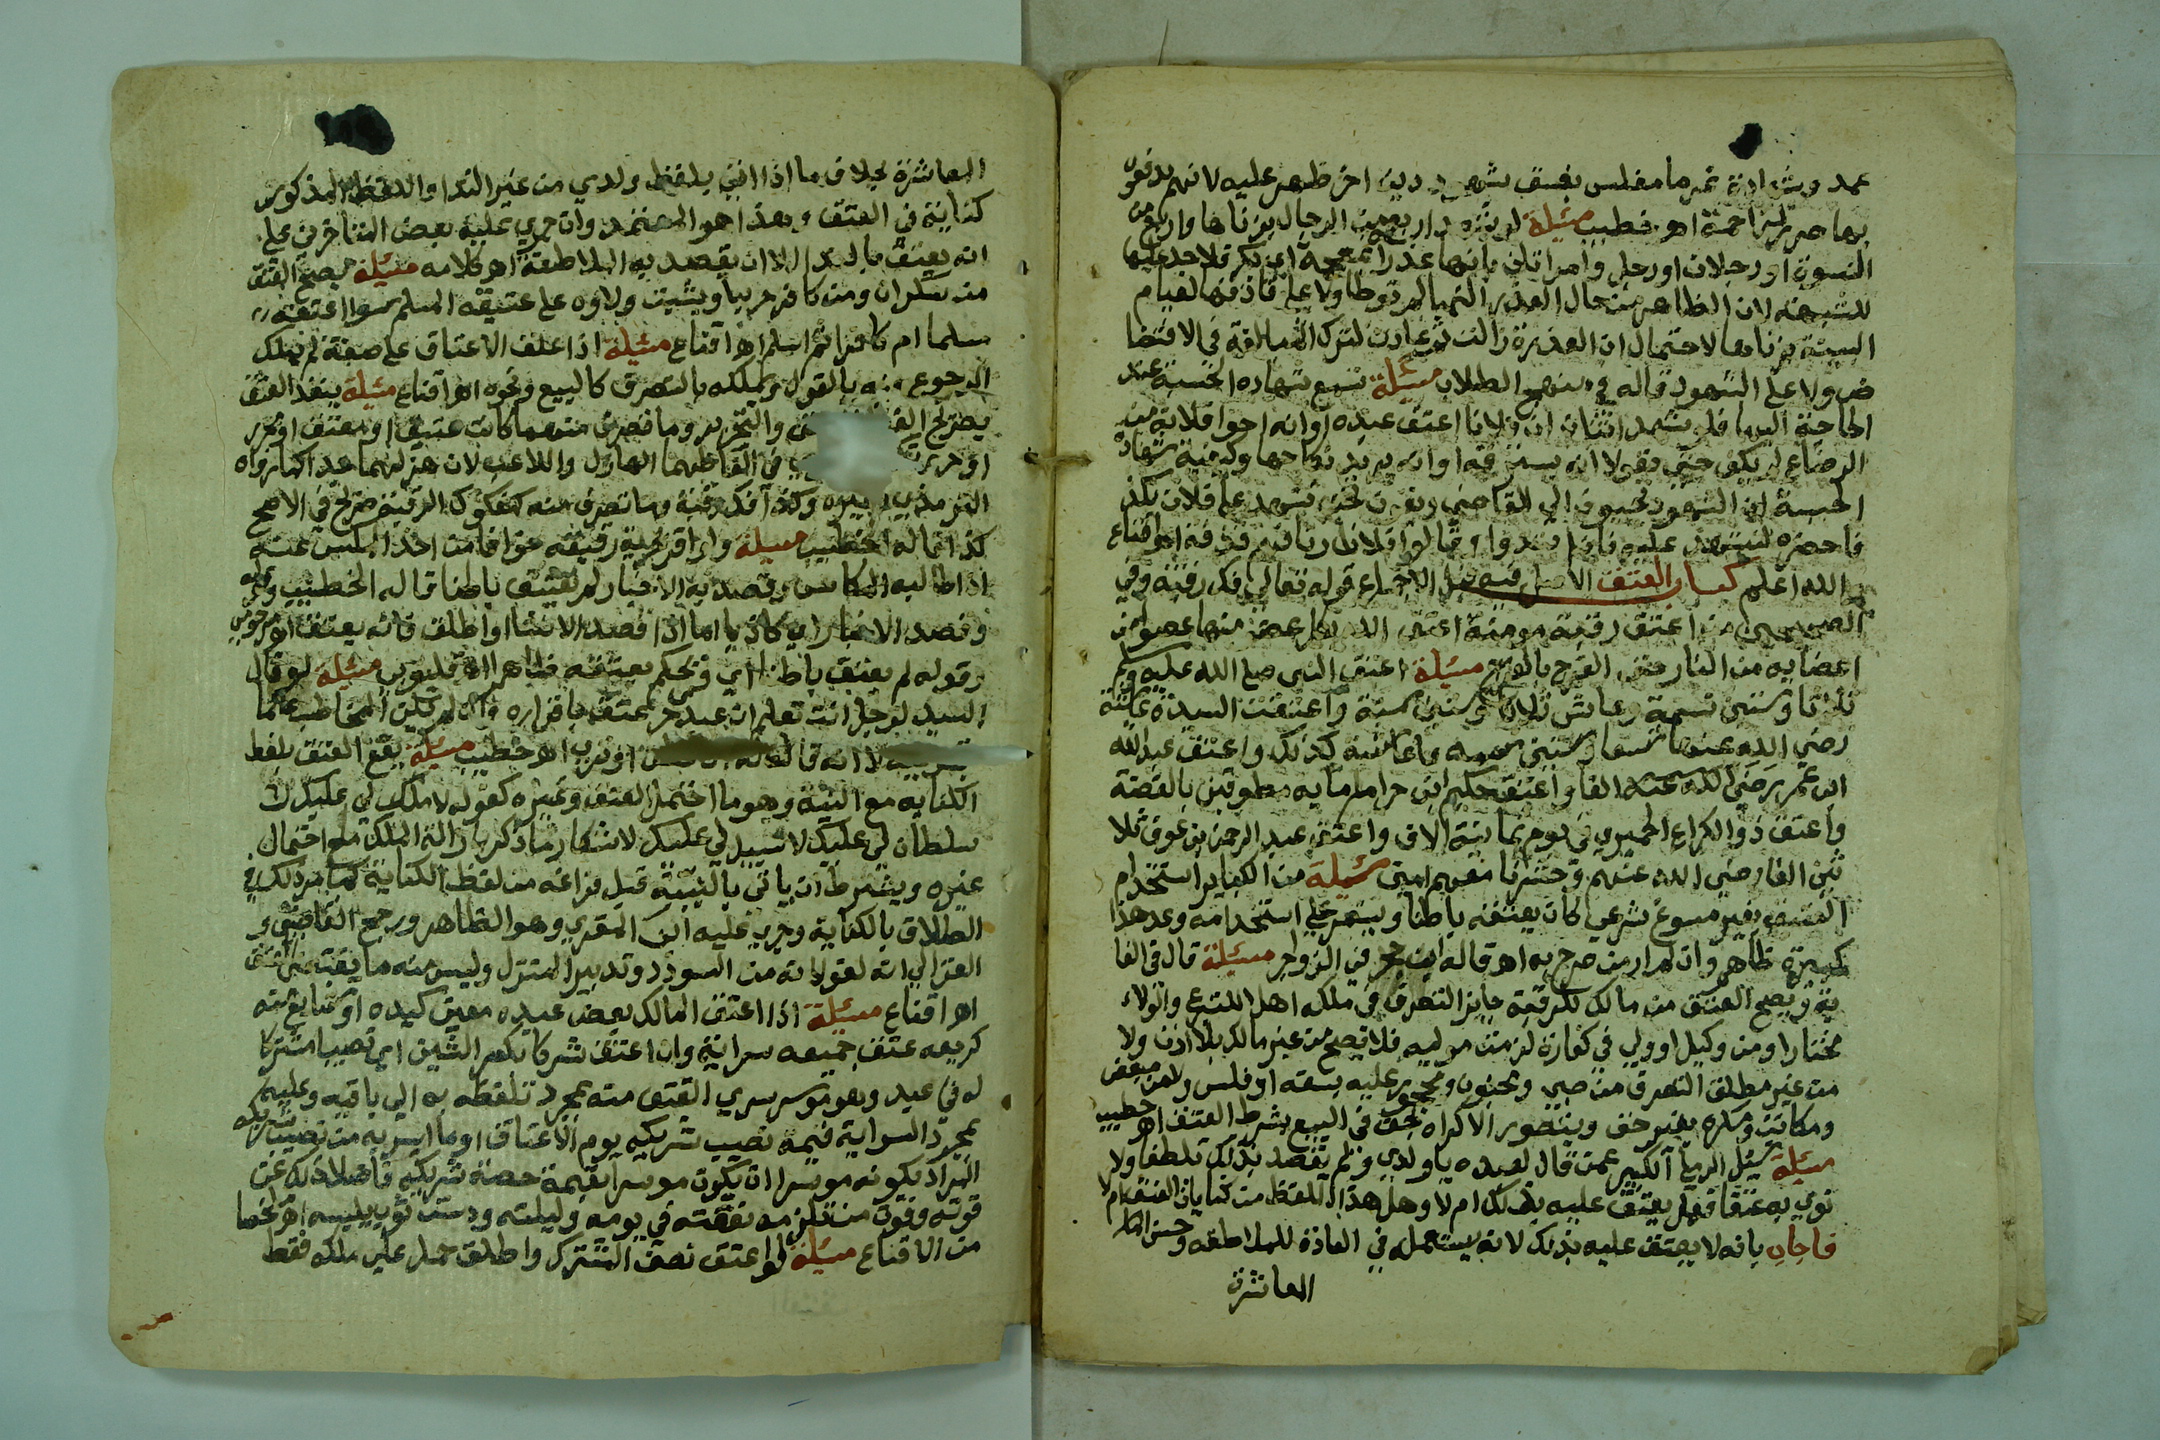 عمد وبشهادة غرما مفلس بفسق شهود دين اخر ظهر عليه لانهم يدفعون
بها ضرر المزاحمة اهـ خطيب مسئلة لو شهد اربعة من الرجال بزناها واربع من
النسوة او رجلان او رجل وامراتان بانها عذرا بمعجمة اي بكر فلا حد عليها
للشبهة لان الظاهر من حال العذرا انها لم توطا ولا على قاذفها لقيام
البينة بزناها لاحتمال ان العذرة زالت ثم عادت لترك المبالغة في الافتضا
ض ولا على الشهود قاله في منهج الطلاب مسئلة تسمع شهادة الحسبة عند
الحاجة اليها فلو شهد اثنان ان فلانا اعتق عبده او انه اخو فلانة من
الرضاع لم يكف حتى يقولا انه يسترقه او انه يريد نكاحها وكيفية شهادة
الحسبة ان الشهود يجيبون الى القاضي ويقولون نحن نشهد على فلان بكذا
فاحضره لنشهد عليه فان ابتدوا وقالوا فلان زنا فهم قذفة اهـ اقناع
والله اعلم كتاب العتق الاصل فيه قبل الاجماع قوله تعالى فك رقبة وفي
الصحيحين من اعتق رقبة مومنة اعتق الله بكل عضو منها عضوا من
اعضايه من النار حتى الفرج بالفرج مسئلة اعتق النبي صلى الله عليه وسلم
ثلاثا وستين نسمة وعاش ثلاثا وستين سنة واعتقت السيدة عائشة
رضي الله عنها تسعا وستين نسمة وعاشت كذلك واعتق عبد الله
ابن عمر رضي الله عنه الفا واعتق حكيم ابن حزام ماية مطوقين بالفضة
واعتق ذو الكراع الحميري في يوم ثمانية الاف واعتق عبد الرحمن بن عوف ثلا
ثين الفا رضي الله عنهم وحشرنا معهم امين مسئلة من الكباير استخدام
العتيق بغير مسوغ شرعي كان يعتقه باطنا ويستمر على استخدامه وعد هذا
كبيرة ظاهر وان لم ار من صرح به اهـ قاله ابن حجر في الزواجر مسئلة قال في الغا
ية ويصح العتق من مالك لكل رقبة جايز التصرف في ملكه اهل للتبرع والولاء
مختارا ومن وكيل او ولي في كفارة لزمت موليه فلا يصح من غير مالك بلا اذن ولا
من غير مطلق التصرف من صبي ومجنون ومحجور عليه بسفه او فلس ولا من مبعض
ومكاتب ومكره بغير حق ويتصور الاكراه بحق في البيع بشرط العتق اهـ خطيب
مسئلة سئل الرملي الكبير عمن قال لعبده يا ولدي ولم يقصد بذلك تلطفا ولا
نوى به عتقا فهل يعتق عليه بذلك ام لا وهل هذا اللفظ من كنايات العتق ام لا
فاجاب بانه لا يعتق عليه بذلك لانه يستعمل في العادة للملاطفة وحسن
العاشرة
العاشرة بخلاف ما اذا اتى بلفظ ولدي من غير الندا واللفظ المذكور
كناية في العتق وهذا هو المعتمد وان جرى عليه بعض المتاخرين على
انه يعتق بالندا الا ان يقصد به الملاطفة اهـ كلامه مسئلة يصح العتق
من سكران ومن كافر حربيا ويثبت ولاوه على عتيقه المسلم سوا اعتقه
مسلما ام كافرا ثم اسلم اهـ اقناع مسئلة اذا علق الاعتاق على صفة لم يملك
الرجوع فيه بالقول ويملكه بالتصرف كالبيع ونحوه اهـ اقناع مسئلة ينفذ العتق
بصريح والتحرير وما تصرف منهما كانت عتيق او معتق او محرر
او حررتك في الفاظهما الهازل واللاعب لان هزلهما جد كما رواه
الترمذي وغيره وكذا فك رقبة وما تصرف منه كمفكوك الرقبة صريح في الاصح
كذا قاله الخطيب مسئلة ولو اقر بحرية رقيقه خوفا من اخذ المكس عنه
اذا طالبه المكاس وقصد به الاخبار لم يعتق باطنا قاله الخطيب وقوله
وقصد الاخبار اي كاذبا اما اذا قصد الانشا او اطلق فانه يعتق اهـ مرحومي
وقوله لم يعتق باطنا اي ونحكم بعتقه ظاهرا اهـ قليوبي مسئلة لو قال
السيد لرجل انت تعلم ان عبدي حر عتق باقراره وان لم يكن المخاطب عالما
بحريته لا ان قال له او ترى اهـ خطيب مسئلة يقع العتق بلفظ
الكناية مع النية وهو ما احتمل العتق وغيره كقوله لا ملك لي عليك لا
سلطان لي عليك لا سبيل لي عليك لاشعار ما ذكر بازالة الملك مع احتمال
غيره ويشترط ان ياتي بالنية قبل فراغه من لفظ الكناية كما مر ذلك في
الطلاق بالكناية وجرى عليه ابن المقري وهو الظاهر ورجع القاضي و
الغزالي انه لغو لانه من السودد وتدبير المنزل وليس منه ما يقتضي العتق
اهـ اقناع مسئلة اذا اعتق المالك بعض عبده معين كيده او شايع منه
كربعه عتق جميعه سراية وان اعتق شركا بكسر الشين اي نصيبا مشتركا
له في عبد وهو موسر سرى العتق منه بمجرد تلفظه به الى باقيه وعليه
بمجرد السراية قيمة نصيب شريكه يوم الاعتاق او ما ايسر به من نصيب شريكه
المراد بكونه موسرا ان يكون موسرا بقيمة حصة شريكه فاضلا ذلك عن
قوته وقوت من تلزمه نفقته في يومه وليلته ودست ثوب يلبسه اهـ ملخصا
من الاقناع مسئلة لو اعتق نصف المشترك واطلق حمل على ملكه فقط